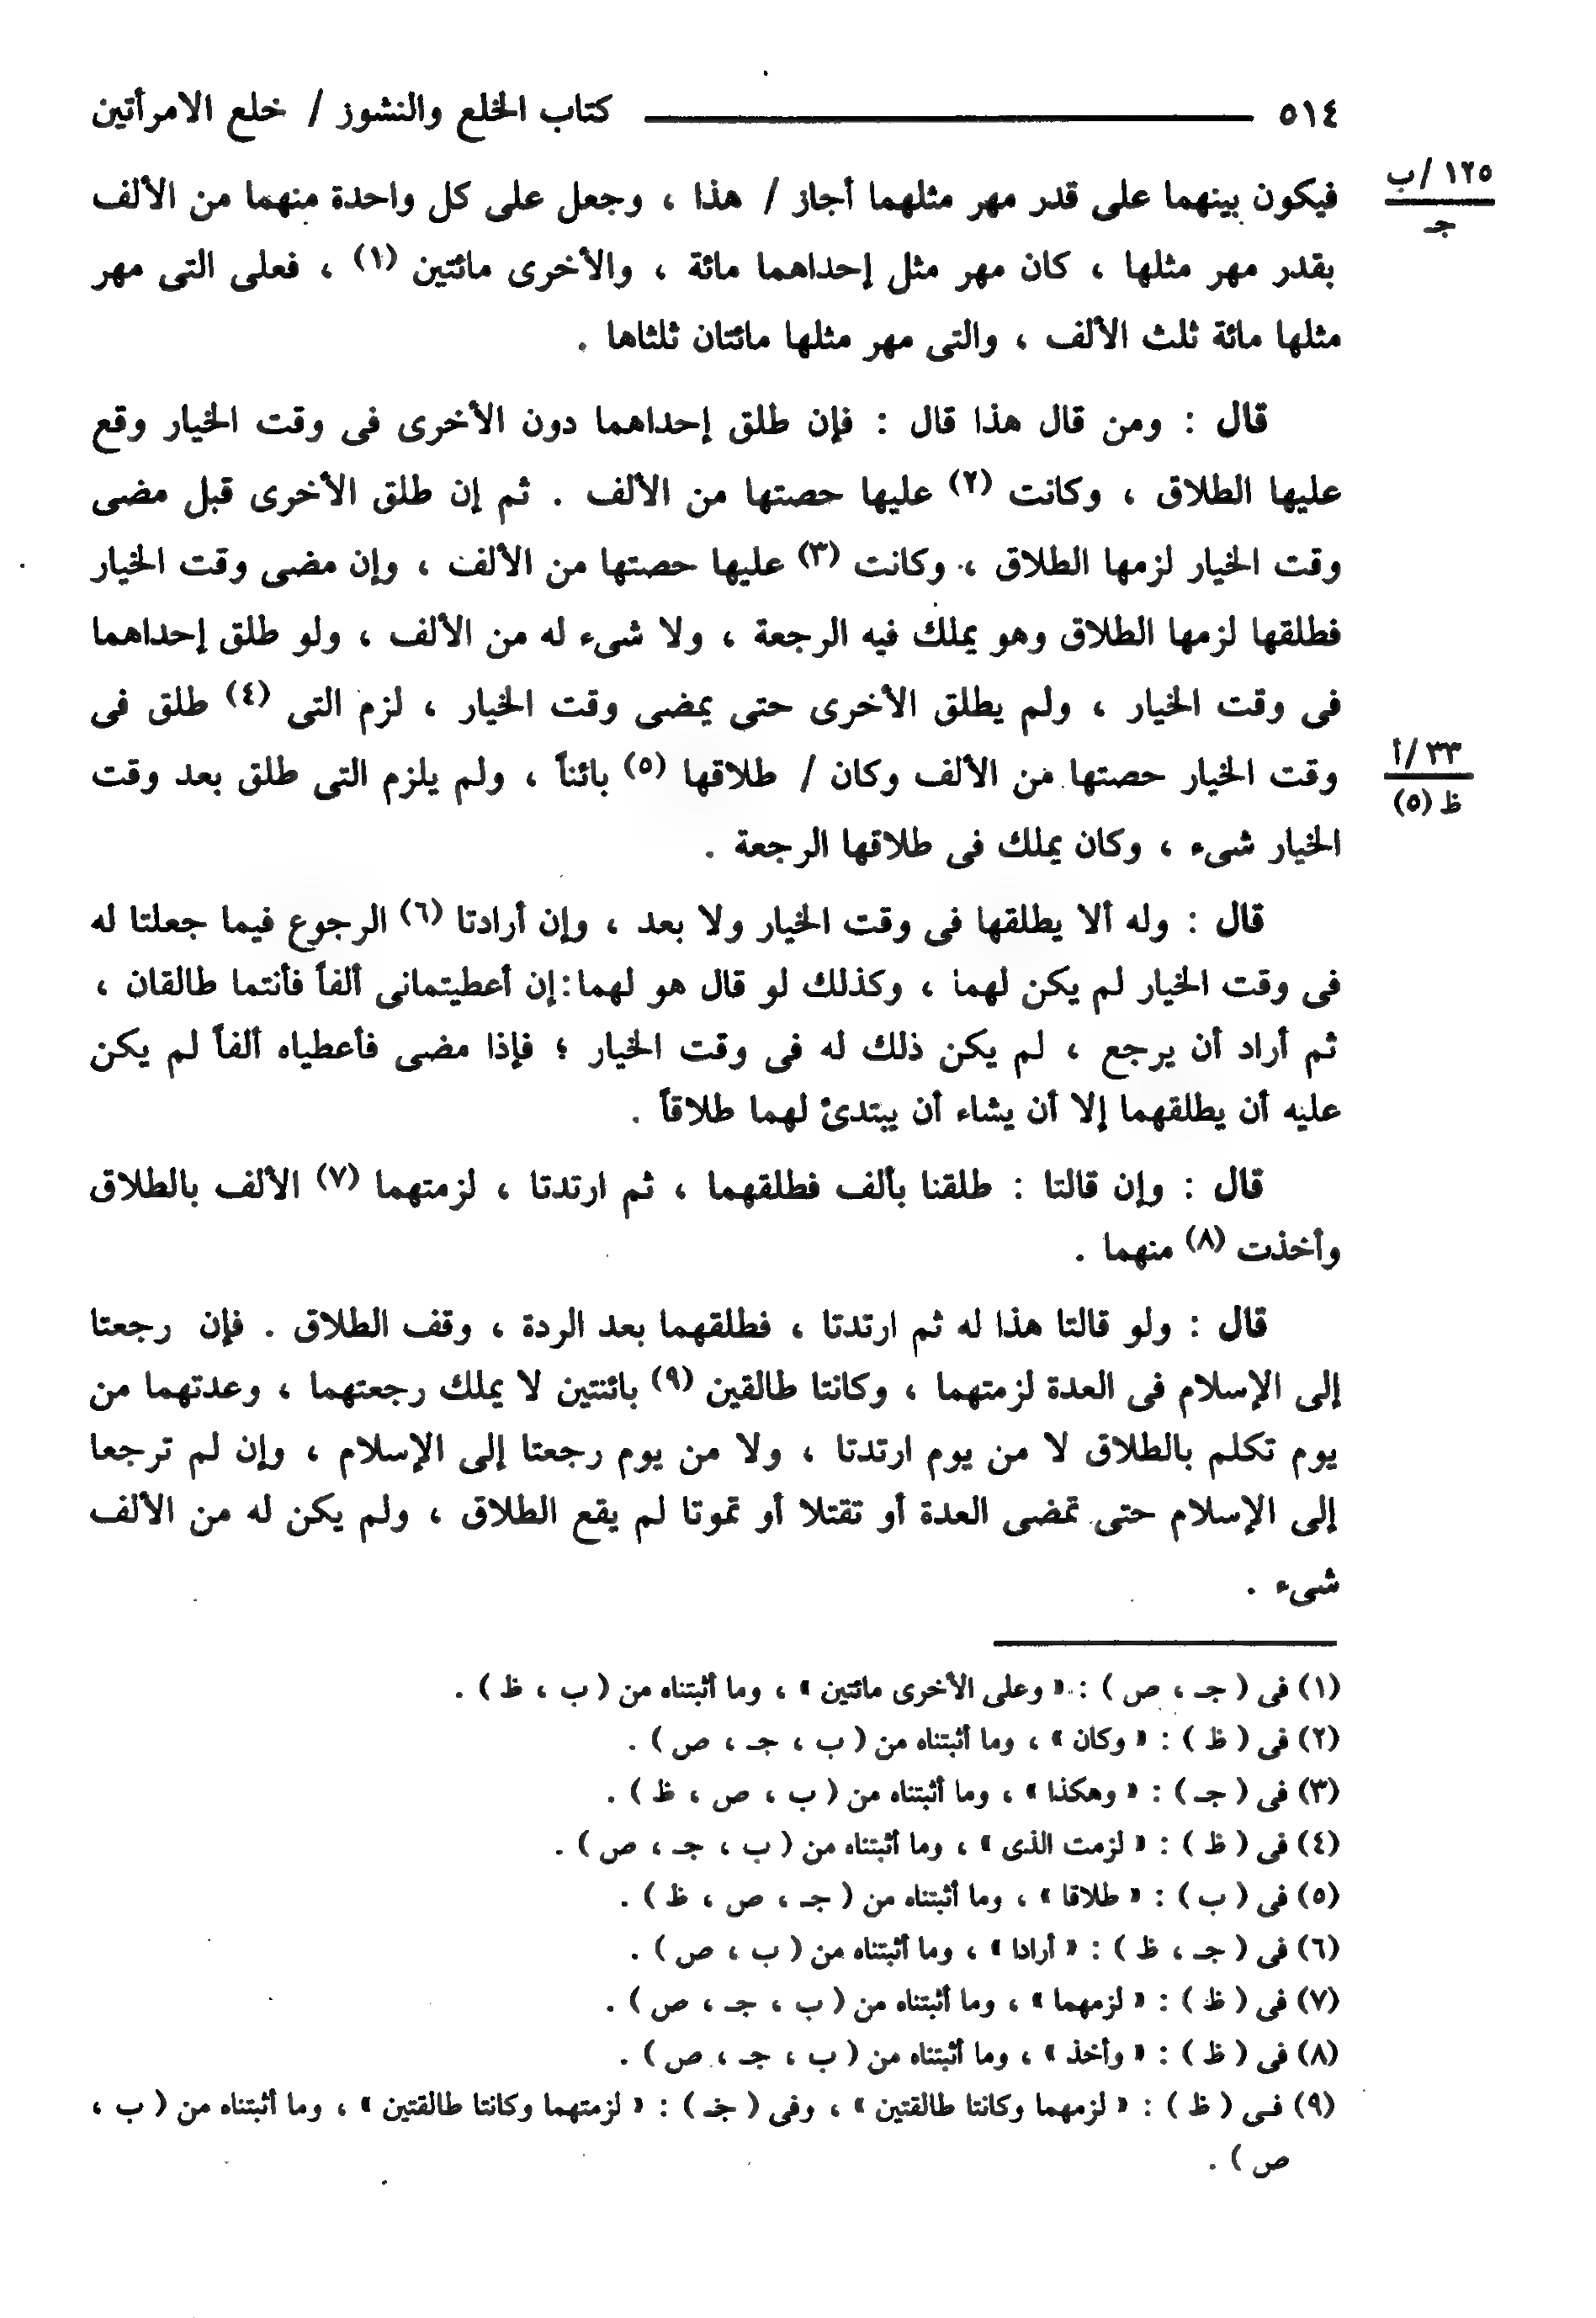 ٥١٤ كتاب الخلع والنشوز / خلع الامرأتين
١٢٥/ب
جـ
فيكون بينهما على قدر مهر مثلهما أجاز / هذا ، وجعل على كل واحدة منهما من الألف
بقدر مهر مثلها ، كان مهر مثل إحداهما مائة ، والأخرى مائتين (١) ، فعلى التى مهر
مثلها مائة ثلث الألف ، والتى مهر مثلها مائتان ثلثاها .
قال : ومن قال هذا قال : فإن طلق إحداهما دون الأخرى فى وقت الخيار وقع
عليها الطلاق ، وكانت (٢) عليها حصتها من الألف . ثم إن طلق الأخرى قبل مضى
وقت الخيار لزمها الطلاق ، وكانت (٣) عليها حصتها من الألف ، وإن مضى وقت الخيار
فطلقها لزمها الطلاق وهو يملك فيه الرجعة ، ولا شىء له من الألف ، ولو طلق إحداهما
فى وقت الخيار ، ولم يطلق الأخرى حتى يمضى وقت الخيار ، لزم التى (٤) طلق فى
٣٣/أ
ظ (٥)
وقت الخيار حصتها من الألف وكان / طلاقها (٥) بائناً ، ولم يلزم التى طلق بعد وقت
الخيار شىء ، وكان يملك فى طلاقها الرجعة .
قال : وله ألا يطلقها فى وقت الخيار ولا بعد ، وإن أرادتا (٦) الرجوع فيما جعلتا له
فى وقت الخيار لم يكن لهما ، وكذلك لو قال هو لهما:إن أعطيتمانى ألفاً فأنتما طالقان ،
ثم أراد أن يرجع ، لم يكن ذلك له فى وقت الخيار ؛ فإذا مضى فأعطياه ألفاً لم يكن
عليه أن يطلقهما إلا أن يشاء أن يبتدئ لهما طلاقاً .
قال : وإن قالتا : طلقنا بألف فطلقهما ، ثم ارتدتا ، لزمتهما (٧) الألف بالطلاق
وأخذت (٨) منهما .
قال : ولو قالتا هذا له ثم ارتدتا ، فطلقهما بعد الردة ، وقف الطلاق . فإن رجعتا
إلى الإسلام فى العدة لزمتهما ، وكانتا طالقين (٩) بائنتين لا يملك رجعتهما ، وعدتهما من
يوم تكلم بالطلاق لا من يوم ارتدتا ، ولا من يوم رجعتا إلى الإسلام ، وإن لم ترجعا
إلى الإسلام حتى تمضى العدة أو تقتلا أو تموتا لم يقع الطلاق ، ولم يكن له من الألف
شىء .
(١) فى ( جـ ، ص ) : « وعلى الأخرى مائتين » ، وما أثبتناه من ( ب ، ظ ) .
(٢) فى ( ظ ) : « وكان » ، وما أثبتناه من ( ب ، جـ ، ص ) .
(٣) فى ( جـ ) : « وهكذا » ، وما أثبتناه من ( ب ، ص ، ظ ) .
(٤) فى ( ظ ) : « لزمت الذى » ، وما أثبتناه من ( ب ، جـ ، ص ) .
(٥) فى ( ب ) : « طلاقا » ، وما أثبتناه من ( جـ ، ص ، ظ ) .
(٦) فى ( جـ ، ظ ) : « أرادا » ، وما أثبتناه من ( ب ، ص ) .
(٧) فى ( ظ ) : « لزمهما » ، وما أثبتناه من ( ب ، جـ ، ص ) .
(٨) فى ( ظ ) : « وأخذ » ، وما أثبتناه من ( ب ، جـ ، ص ) .
(٩) فـى ( ظ ) : « لزمهما وكانتا طالقتين » ، وفى ( جـ ) : « لزمتهما وكانتا طالقتين » ، وما أثبتناه من ( ب ،
ص ) .